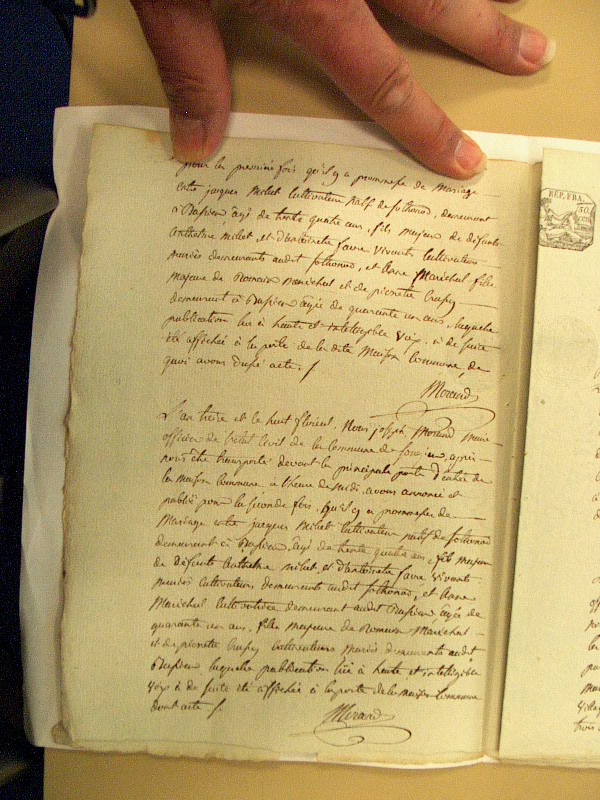 pour la première fois qu'il y a promesse de Mariage
Entre jacques Milet Cultivateur natif de jothonod, demeurant
à Dapsieu âgé de trente quatre ans, fils majeur de défunts
Anthelme Milet, et d'antoinette favre Vivants Cultivateurs
mariés demeurants audit jothonod, et Anne Maréchal fille
majeure de Romain maréchal et de pierrette
demeurant à Dapsieu âgée de quarante un ans, laquelle
publication lue à haute et intelligible Voix, a de suite
été affichée à la porte de la dite Maison Commune, de
quoi avons dressé acte. /
Morand
L'an treize et le huit floréal, Nous joseph Morand maire
officier de l'état Civil de la Commune de après
nous être transporté devant la principale porte d'entrée de
la maison Commune à l'heure de midi, avons annoncé et
publié pour la seconde fois, qu'il y a promesse de
Mariage entre jacques Milet Cultivateur natif de jothonod
demeurant à Dapsieu, âgé de trente quatre ans, fils majeur
de défunts Anthelme milet, et d'antoinette favre Vivants
mariés Cultivateurs demeurants audit jothonod, et Anne
Maréchal Cultivatrice demeurant audit Dapsieu âgée de
quarante un ans, fille majeure de Romain Maréchal
et de pierrette Cultivateurs Mariés, demeurants audit
Dapsieu laquelle publication lue à haute et intelligible
Voix a de suite été affichée à la porte de la maison Commune
dont acte /.
Morand
REP. FRA.